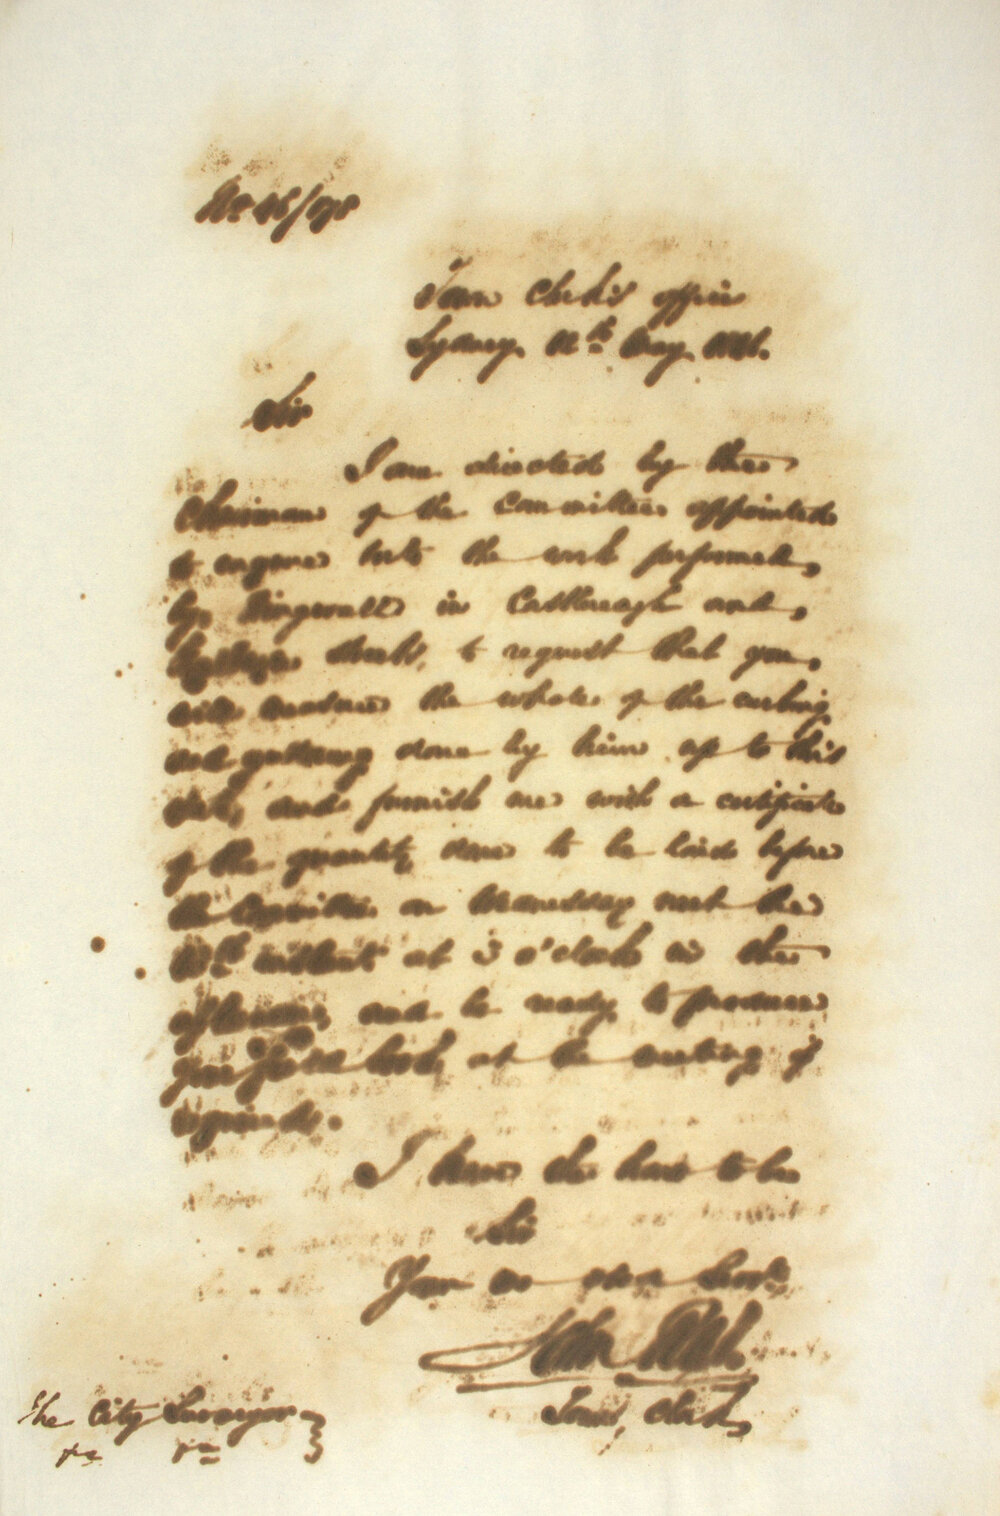 No 46/
Town Clerk's office
Sydney 12th May 1846.
Sir
I am directed by the
Chairman of the Committee appointed
to enquire into the work performed
by in Castlereagh and
Streets, to request that you
will measure the whole of the curbing
and guttering done by him up to this
date, and furnish me with a certificate
of the quantity done to be laid before
the Committee on Wednesday next the
instant at 3 o'Clock in the
afternoon, and be ready to produce
your field book, at the meeting if
required.
I have the honor to be
Sir
Your mo obed Servt
John
Town Clerk
The City Surveyor